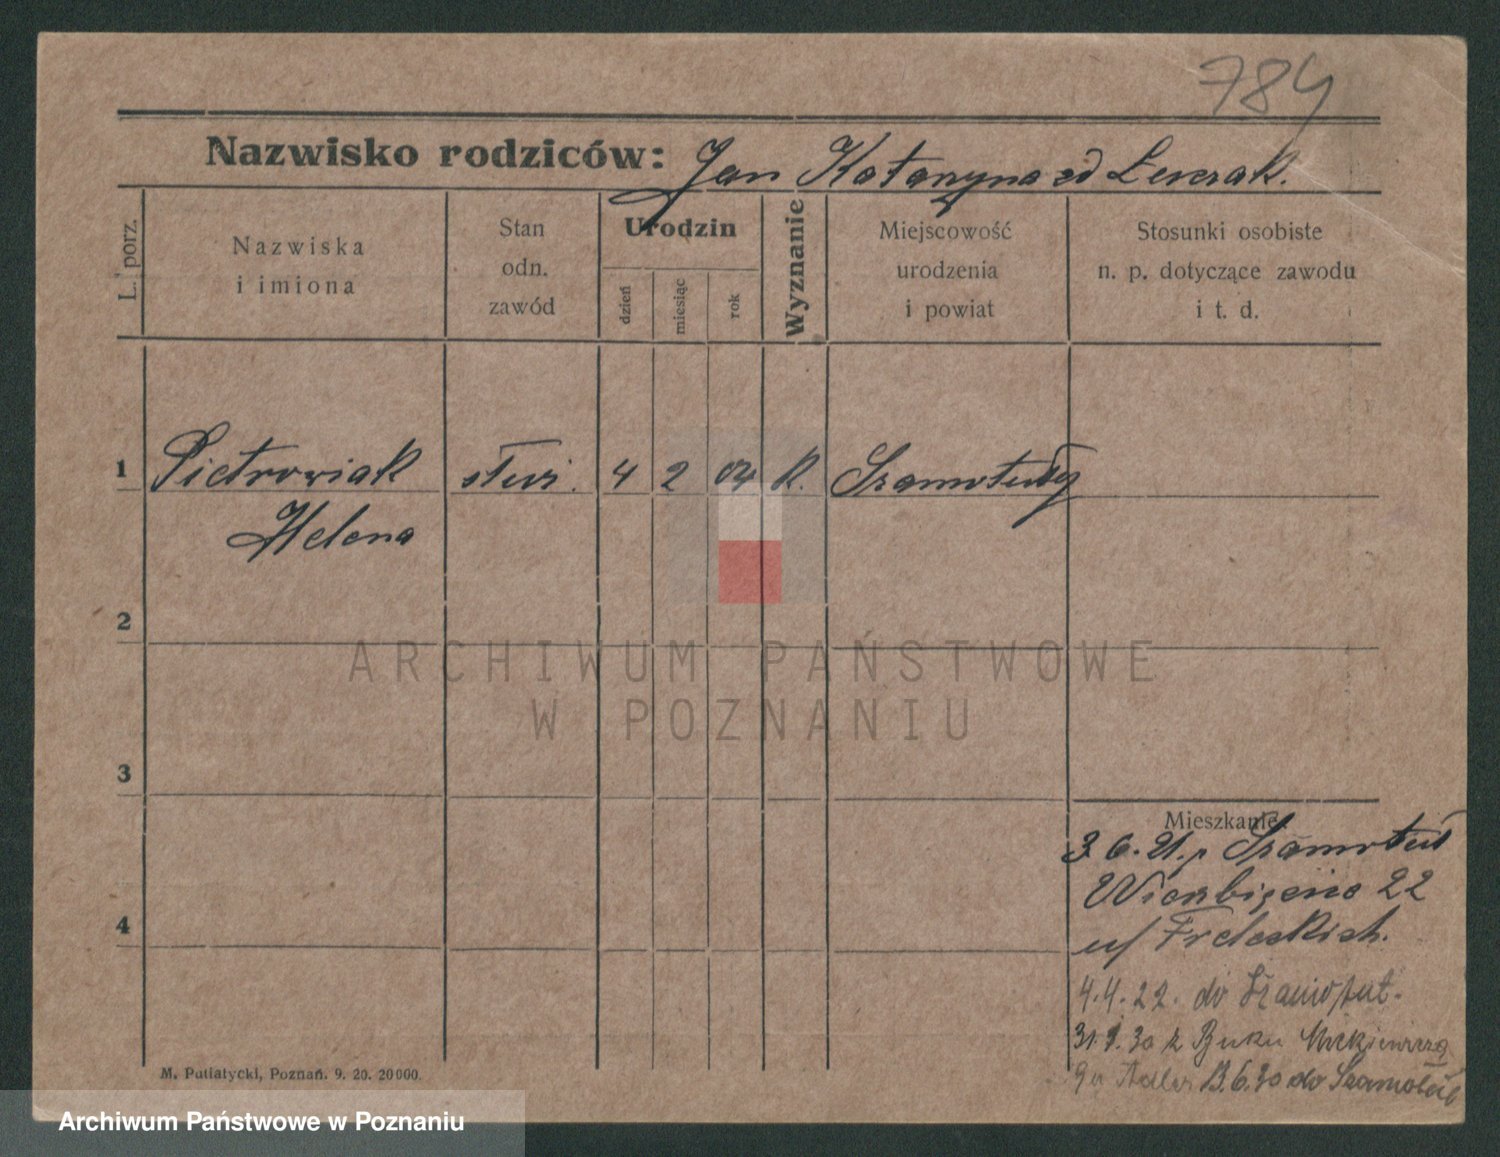 784
Nazwisko rodziców: Jan Katarzyna zd Leszak.
L. porz.
Nazwiska
i imiona
Stan
odn.
zawód
Urodzin
dzień
miesiąc
rok
Wyznanie
Miejscowość
urodzenia
i powiat
Stosunki osobiste
n. p. dotyczące zawodu
i t. d.
1 Pietrowiak służ. 4 2 04 K. Szamotuły
Helena
2
ARCHIWUM PAŃSTWOWE
W POZNANIU
3
Mieszkanie
3.6.21. Szamotuł
22
4
u/
4.4.22. do Szamotuł.
31. 30 z Buku Mickiewicza
9 u Adler 13.6.30 do Szamotuł
M. Putiatycki, Poznań. 9. 20. 20000.
Archiwum Państwowe w Poznaniu